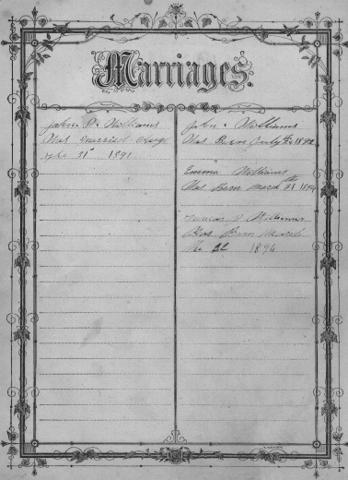 Marriages.
John P. Williams
Was married Aug
the 31st 1891
John Williams
Was Born July 1892
Emma Williams
Was Born March 31 1894
Williams
Was Born March
the 22 1896